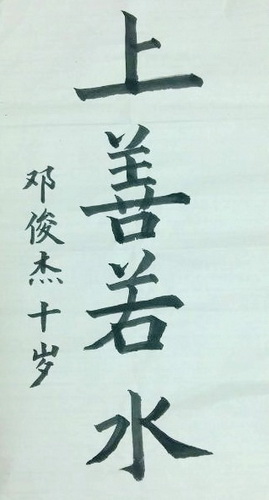 上善若水
邓俊杰十岁